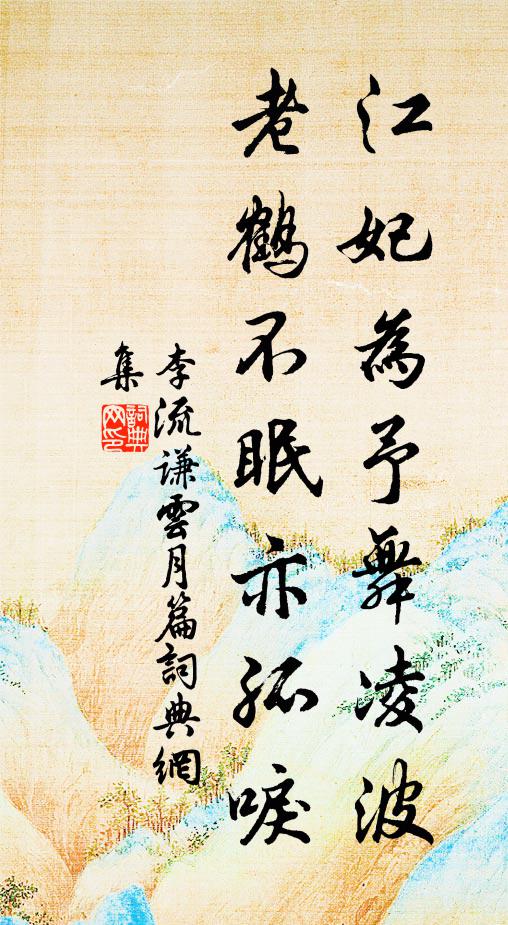 江妃為予舞凌波
老鶴不眠亦孤唳
李流謙雲月篇詞典網
集
詞典網印